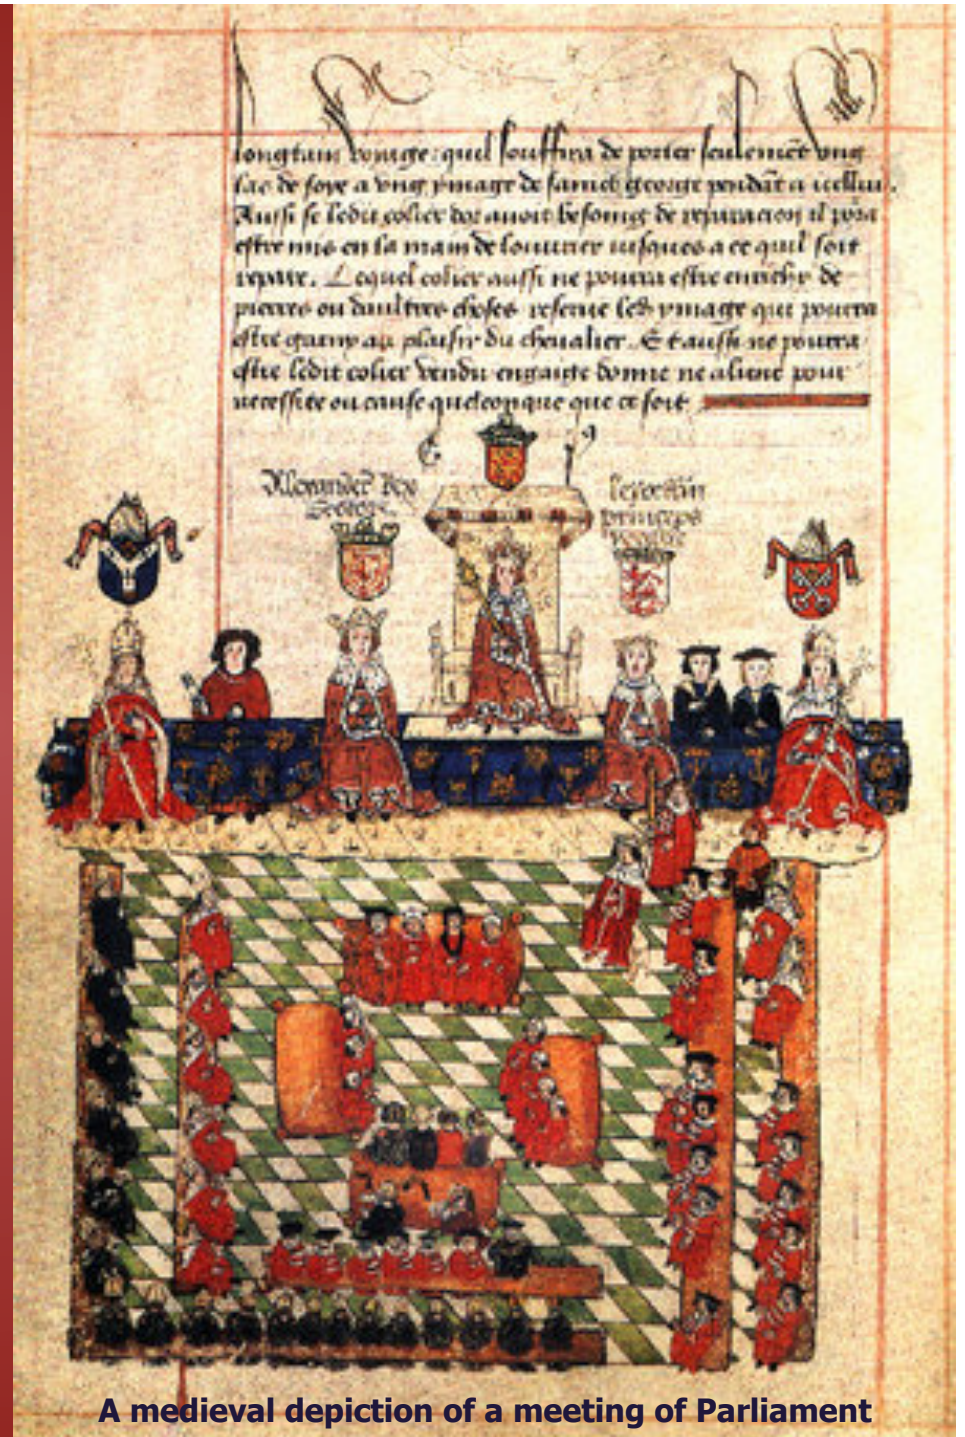 longtain voiaige: quil souffira de porter seulement ung
las de soye a ung ymage de sainct george pendāt a icellui.
Aussi se ledit colier dor auoit besoing de reparacion il pora
estre mis en la main de louurier iusques a ce quil soit
repare. Lequel colier aussi ne pourra estre enrichy de
pierres ou daultres choses reserue led ymage qui pourra
estre garny au plaisir du cheualier. Et aussi ne pourra
estre ledit colier vendu engaige donne ne aliene pour
necessite ou cause quelconque que ce soit
E
Alexander Rex
princeps
A medieval depiction of a meeting of Parliament